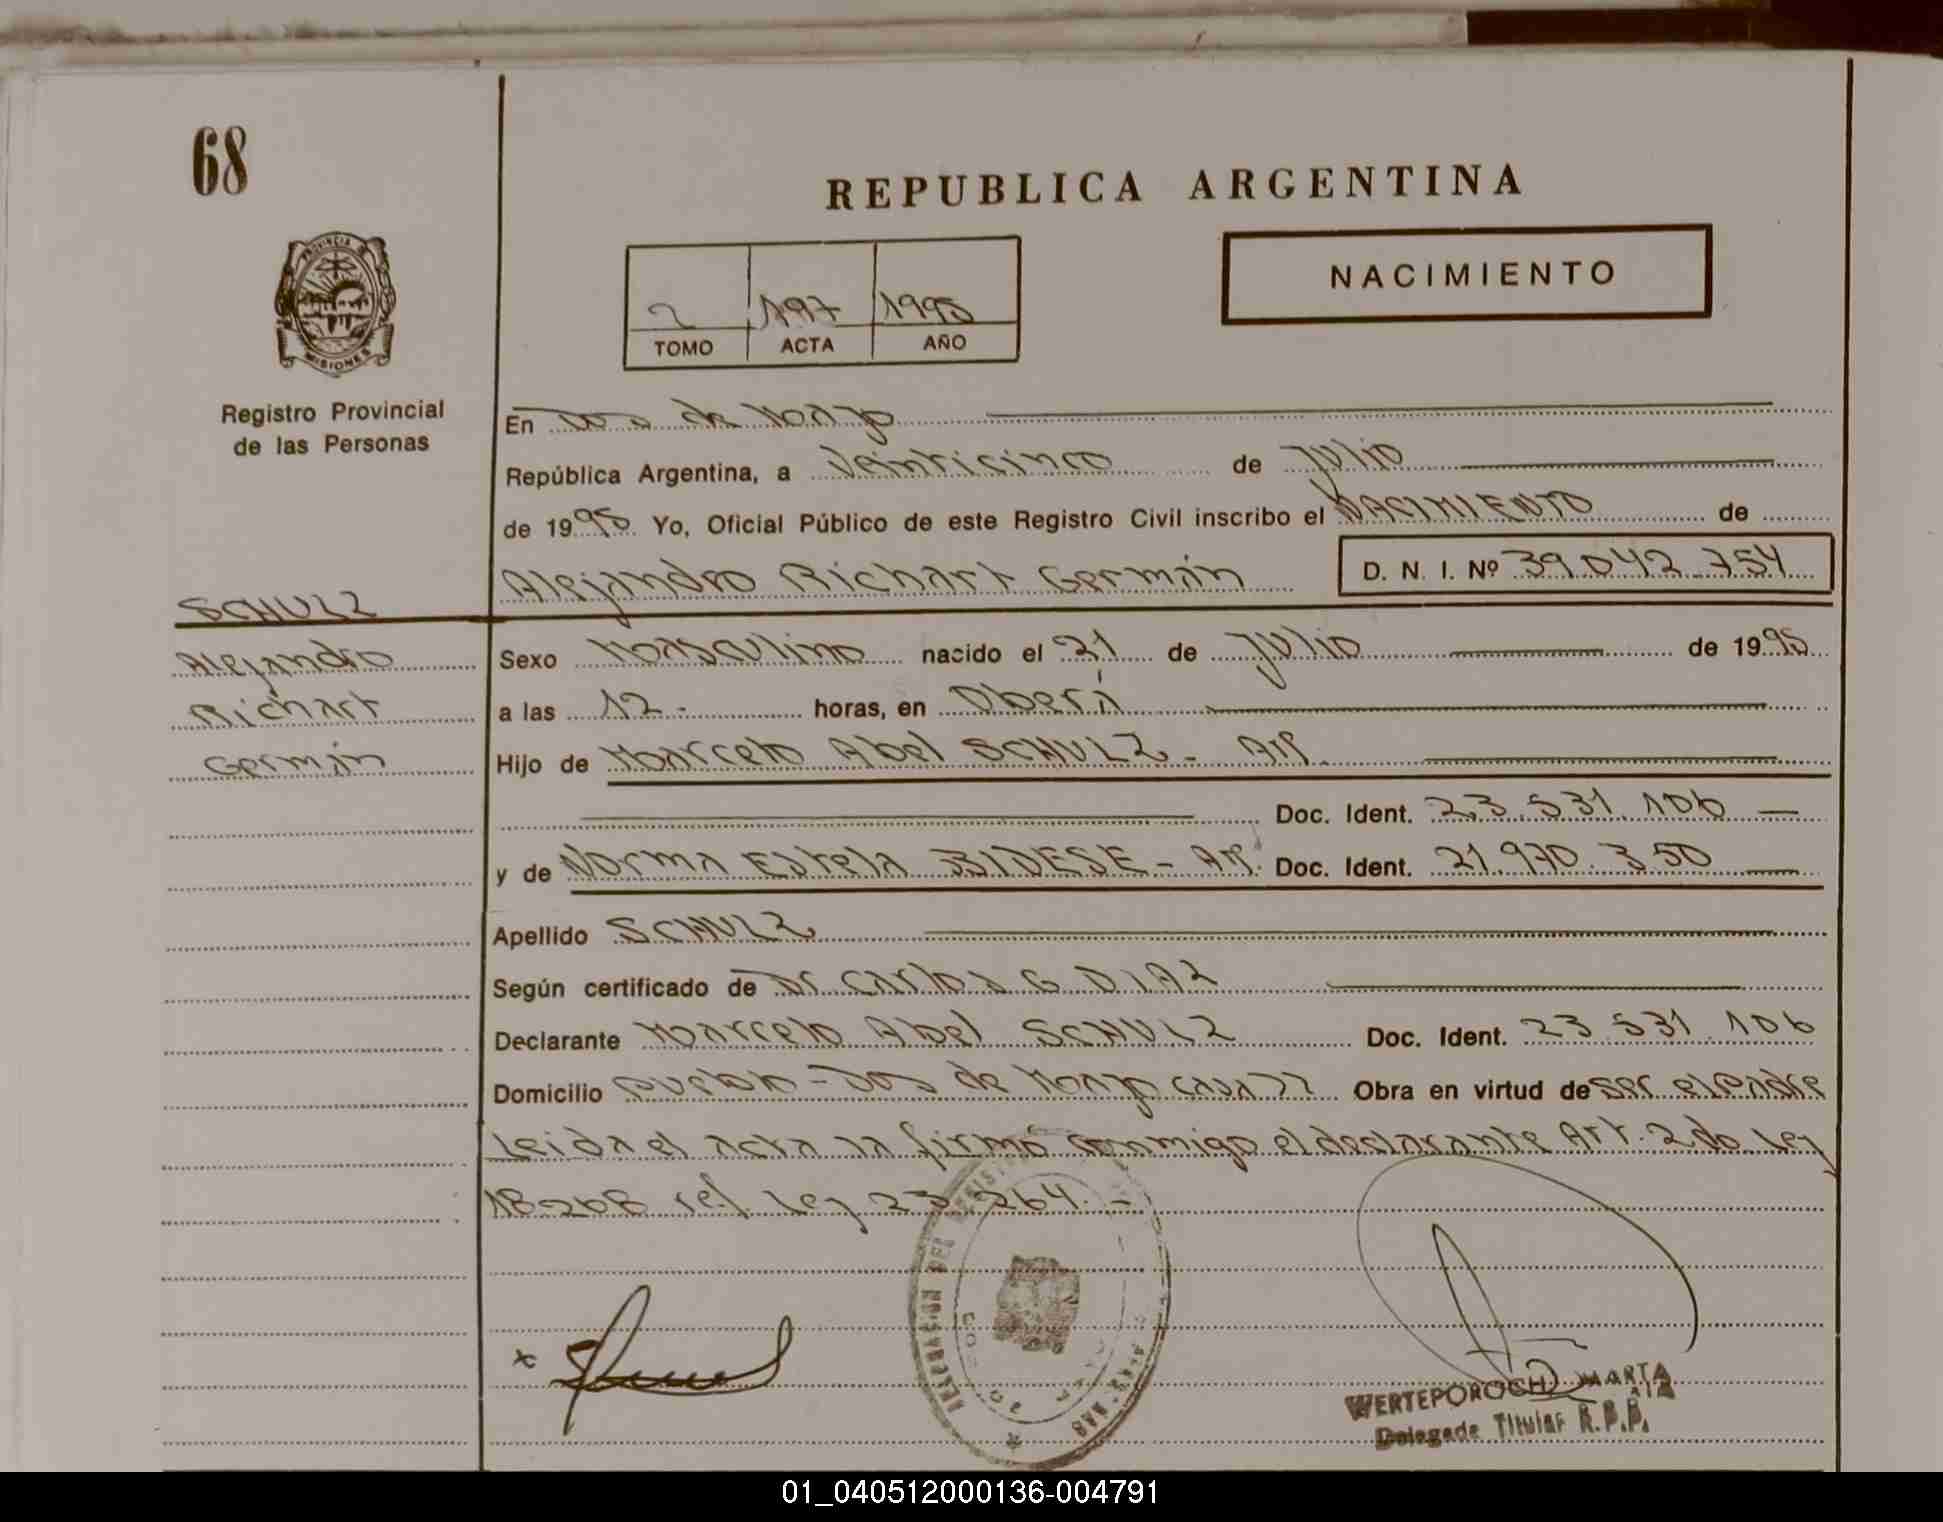 68
REPUBLICA ARGENTINA
NACIMIENTO
2 197 1995
TOMO ACTA AÑO
PROVINCIA DE
MISIONES
Registro Provincial
de las Personas
En Dos de Mayo
República Argentina, a Veinticinco de Julio
de 1995 Yo, Oficial Público de este Registro Civil inscribo el NACIMIENTO de
Alejandro Richart Germán D. N. I. Nº 39.042.754
SCHULZ
Alejandro
Richart
Germán
Sexo Masculino nacido el 21 de Julio de 1995
a las 12.- horas, en Oberá
Hijo de Marcelo Abel SCHULZ - Arg.
Doc. Ident. 23.531.106
y de Norma Estela BIDESE - Arg. Doc. Ident. 21.970.350
Apellido SCHULZ
Según certificado de Dr Carlos G DIAZ
Declarante Marcelo Abel SCHULZ Doc. Ident. 23.531.106
Domicilio Pueblo - Dos de Mayo casa 77 Obra en virtud de ser el Padre
Leida el acta la firmó conmigo el declarante Art. 2do Ley
18.268 ref. Ley 23.264.-
x
WERTEPOROCH MARTA
Delegada Titular R.P.P.
01_040512000136-004791